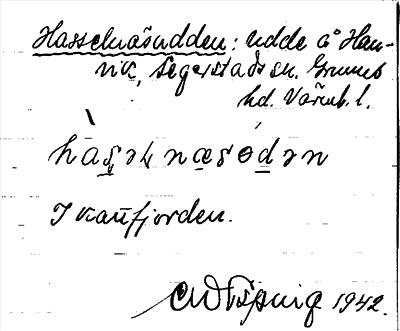 Hasselnäsudden: udde å Han-
vik, Segerstads sn. Grums
hd. Värml. l.
hàs̱əɫnæsódən
I kanfjorden.
1942.